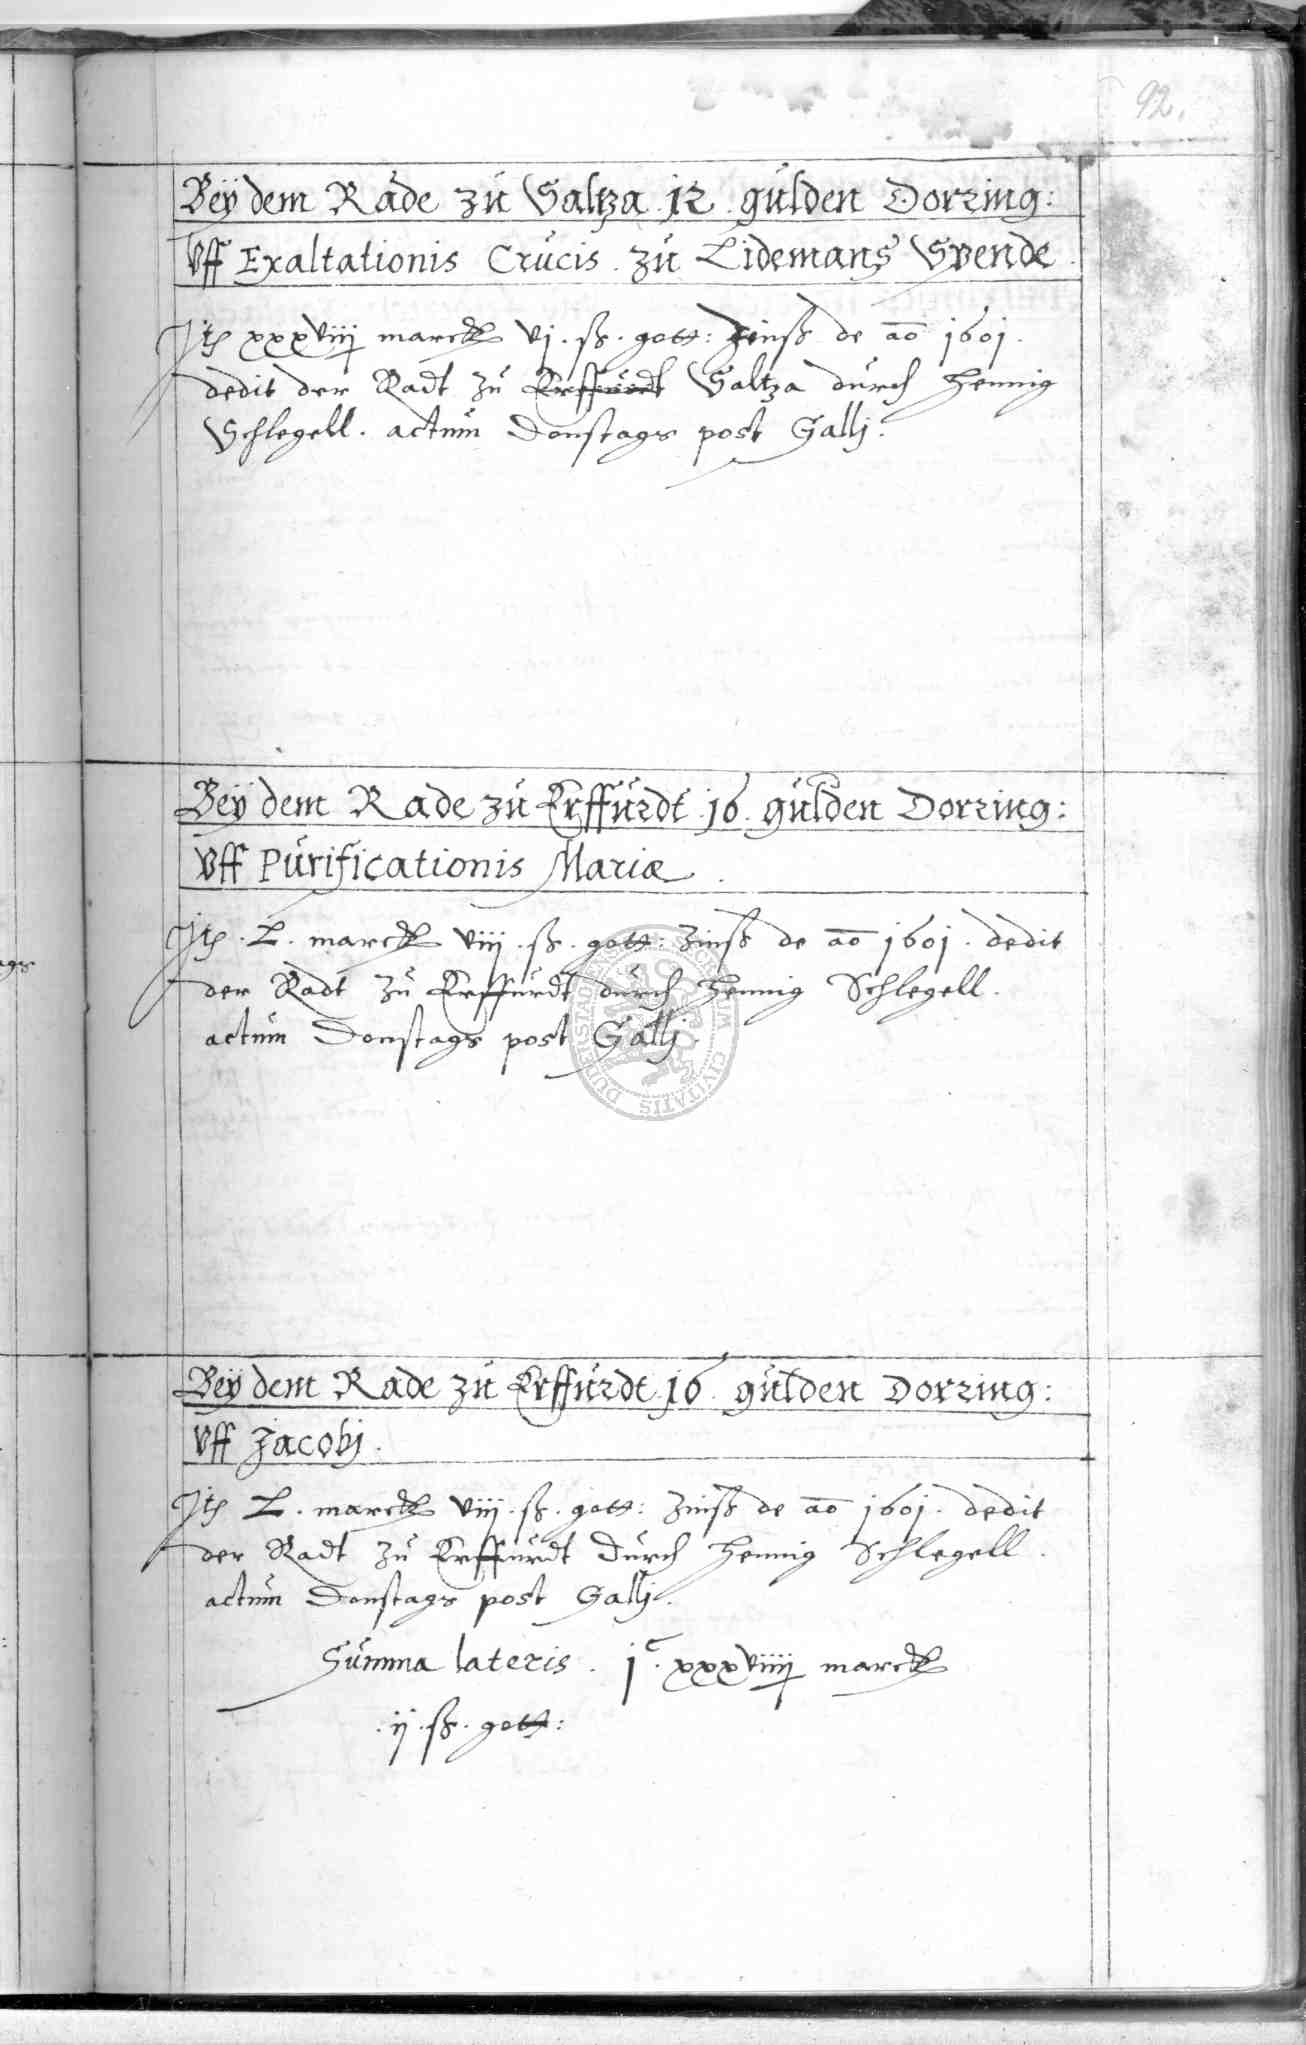 92.
Beÿ dem Rade zu Saltza 12 gulden Dorring:
Vff Exaltationis Crucis. zu Lidemans Spende.
Jtem xxxviiij marck vj. ß. gott: Zinß de ao 1601.
dedit der Radt zu Erffurdt Saltza durch Hennig
Schlegell. actum Donstags post Gallj.
Beÿ dem Rade zu Erffurdt 16. gulden Dorring:
Vff Purificationis Mariæ.
Jtem. L. marck viij. ß. gott: Zinß de ao 1601. dedit
der Radt zu Erffurdt durch Hennig Schlegell.
actum Donstags post Gallj.
Beÿ dem Rade zu Erffurdt 16. gulden Dorring:
Vff Jacobj.
Jtem L. marck viij. ß. gott: Zinß de ao 1601. dedit
der Radt zu Erffurdt durch Hennig Schlegell.
actum Donstags post Gallj.
Summa lateris. jc. xxxviiij marck
.ij. ß. gott: